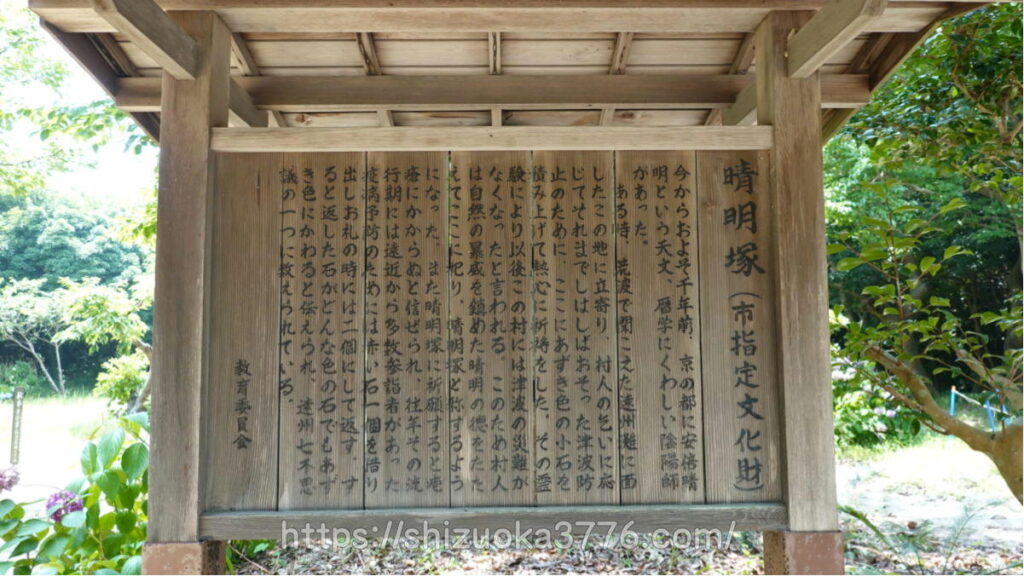 晴明塚(市指定文化財)
今からおよそ千年前、京の都に安倍晴
明という天文、暦学にくわしい陰陽師
があった。
ある時、荒波で聞こえた遠州灘に面
したこの地に立寄り、村人の乞いに応
じてそれまでしばしばおそった津波防
止のために、ここにあずき色の小石を
積み上げて熱心に祈祷をした。その霊
験により以後この村には津波の災難が
なくなったと言われる。このため村人
は自然の暴威を鎮めた晴明の徳をたた
えてここに祀り、晴明塚と称するよう
になった。また晴明塚に祈願すると疱
瘡にかからぬと信ぜられ、往年その流
行期には遠近から多数参詣者があった
疫病予防のためには赤い石一個を借り
出しお札の時には二個にして返す。す
ると返した石がどんな色の石でもあず
き色にかわると伝えられ、遠州七不思
議の一つに数えられている。
教育委員会
https://shizuoka3776.com/